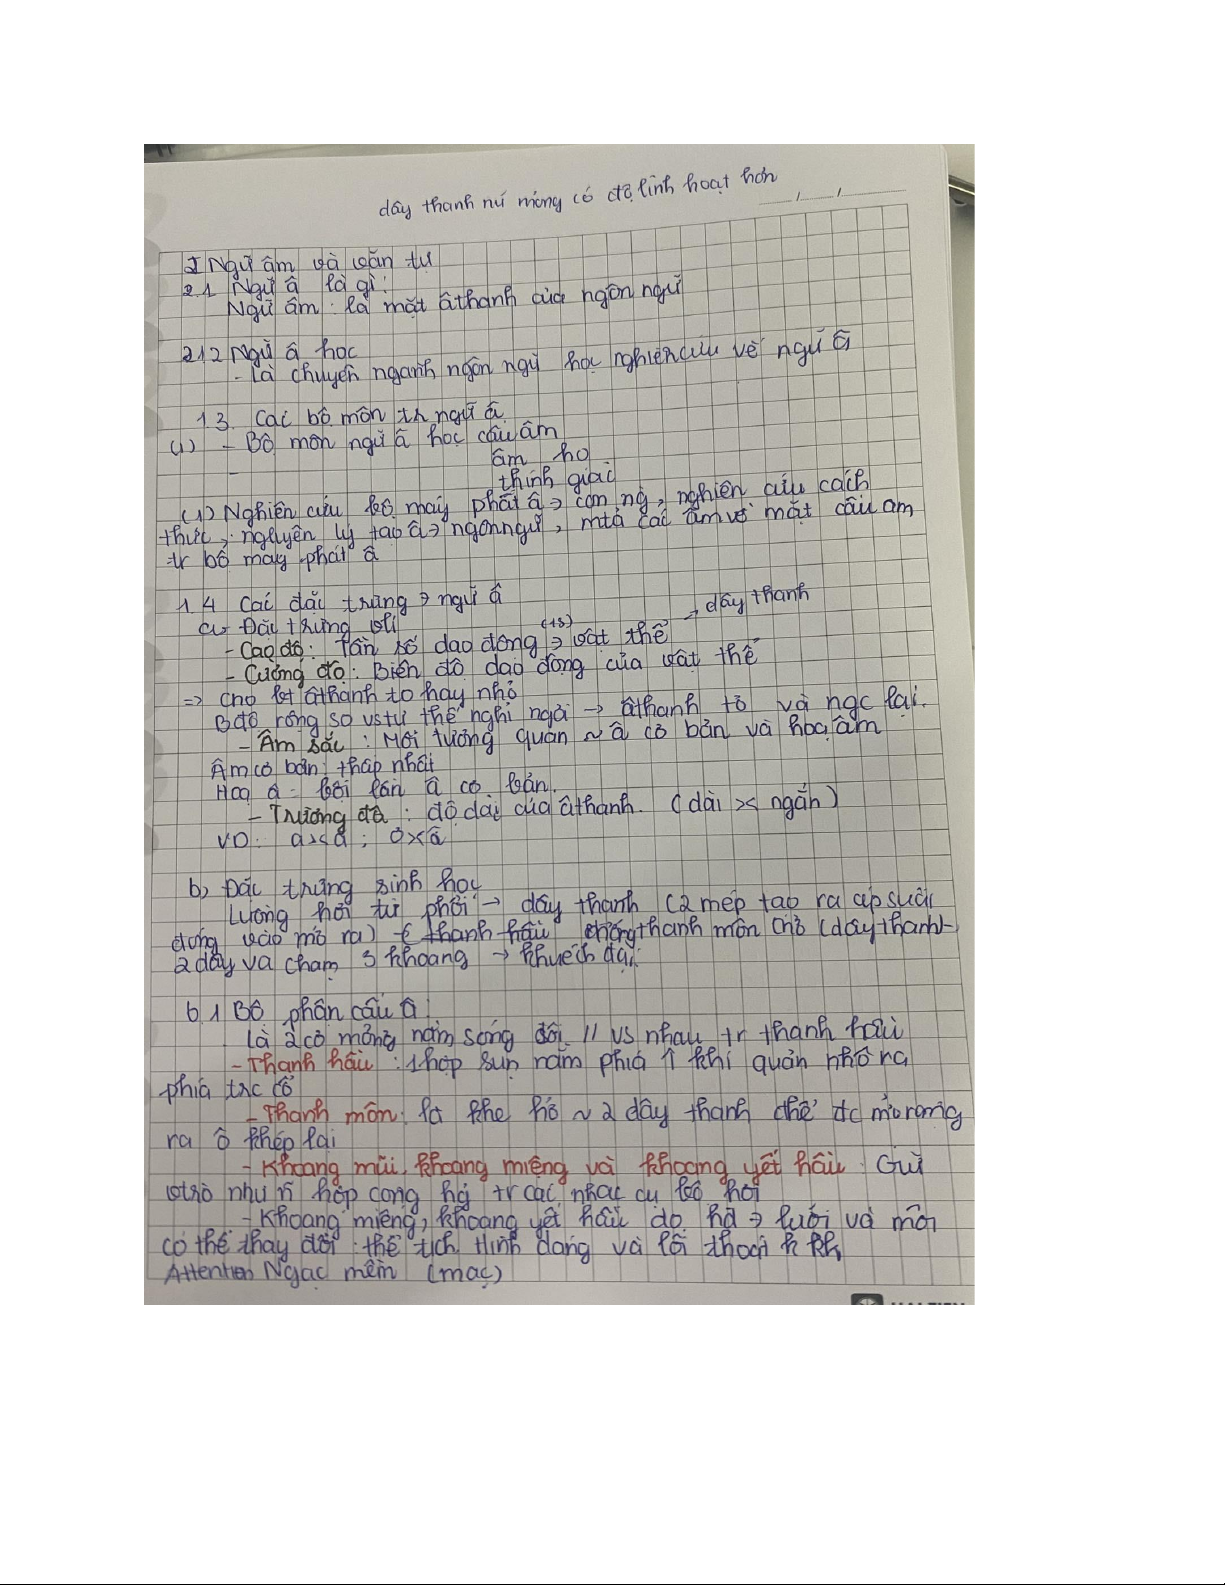 dây thanh nữ mỏng có độ linh hoạt hơn
I Ngữ âm và văn tự
2.1 Ngữ â là gì:
Ngữ âm: là mặt âthanh của ngôn ngữ
2.1.2 Ngữ â học
- Là chuyên ngành ngôn ngữ học nghiên cứu về ngữ â
1.3. Các bộ môn tr ngữ â
(1) - Bộ môn ngữ â học cấu âm
âm họ
thính giác
-
(1) Nghiên cứu bộ máy phát â → con ng, nghiên cứu cách
thức, nguyên lý tạo â → ngôn ngữ, mtả các âm về mặt cấu âm
tr bộ máy phát â
1.4 Các đặc trưng → ngữ â
a, Đặc trưng vlí
- Cao độ: Tần số dao động → vật thể → dây thanh
(ts)
- Cường độ: Biên độ dao động của vật thể
=> Cho bt âthanh to hay nhỏ
Bđộ rộng so vs tư thế nghỉ ngơi → âthanh to và ngc lại.
- Âm sắc: Mối tương quan ~ â cơ bản và hoạ âm
Âm cơ bản: thấp nhất
Hoạ â: bội lần â cơ bản.
- Trường độ: độ dài của âthanh. (dài >< ngắn)
VD: a><ă; ơ><â
b, Đặc trưng sinh học
Lượng hơi từ phổi → dây thanh (2 mép tạo ra áp suất
đóng vào mở ra) thanh hầu thanh môn (dây thanh-
2 dây và chạm 3 khoang → khuếch đại
b.1 Bộ phận cấu â:
Là 2 cơ mỏng nằm song đôi // vs nhau tr thanh hầu
- Thanh hầu: 1 hộp sụn nằm phía ↑ khí quản nhô ra
phía trc cổ
- Thanh môn: là khe hở ~ 2 dây thanh thể đc mở rộng
ra khép lại
- Khoang mũi, khoang miệng và khoang yết hầu: Giữ
vtrò như n~ hộp cộng hg tr các nhạc cụ bộ hơi
- Khoang miệng, khoang yết hầu do hđ → lưỡi và môi
có thể thay đổi: thể tích hình dáng và lối thoát k kh
Attention Ngạc mềm (mạc)